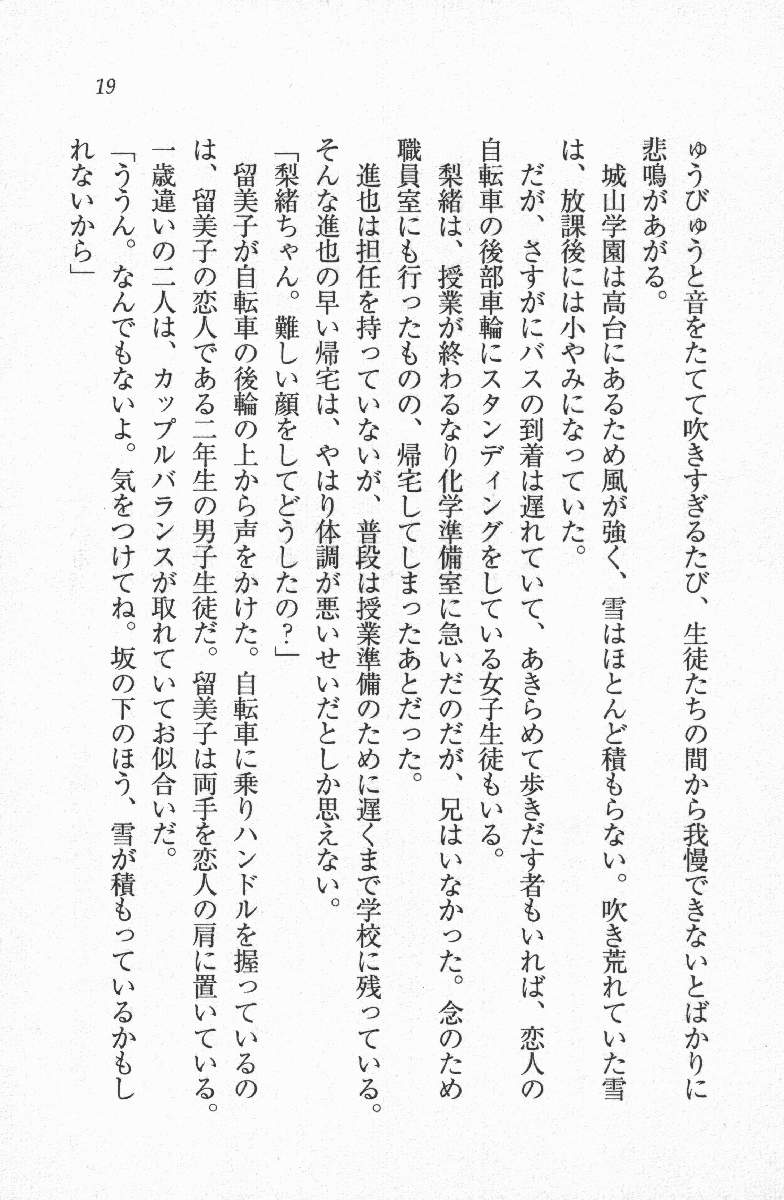 19
ゅうびゅうと音をたてて吹きすぎるたび、生徒たちの間から我慢できないとばかりに
悲鳴があがる。
　城山学園は高台にあるため風が強く、雪はほとんど積もらない。吹き荒れていた雪
は、放課後には小やみになっていた。
　だが、さすがにバスの到着は遅れていて、あきらめて歩きだす者もいれば、恋人の
自転車の後部車輪にスタンディングをしている女子生徒もいる。
　梨緒は、授業が終わるなり化学準備室に急いだのだが、兄はいなかった。念のため
職員室にも行ったものの、帰宅してしまったあとだった。
　進也は担任を持っていないが、普段は授業準備のために遅くまで学校に残っている。
そんな進也の早い帰宅は、やはり体調が悪いせいだとしか思えない。
「梨緒ちゃん。難しい顔をしてどうしたの？」
　留美子が自転車の後輪の上から声をかけた。自転車に乗りハンドルを握っているの
は、留美子の恋人である二年生の男子生徒だ。留美子は両手を恋人の肩に置いている。
一歳違いの二人は、カップルバランスが取れていてお似合いだ。
「ううん。なんでもないよ。気をつけてね。坂の下のほう、雪が積もっているかもし
れないから」